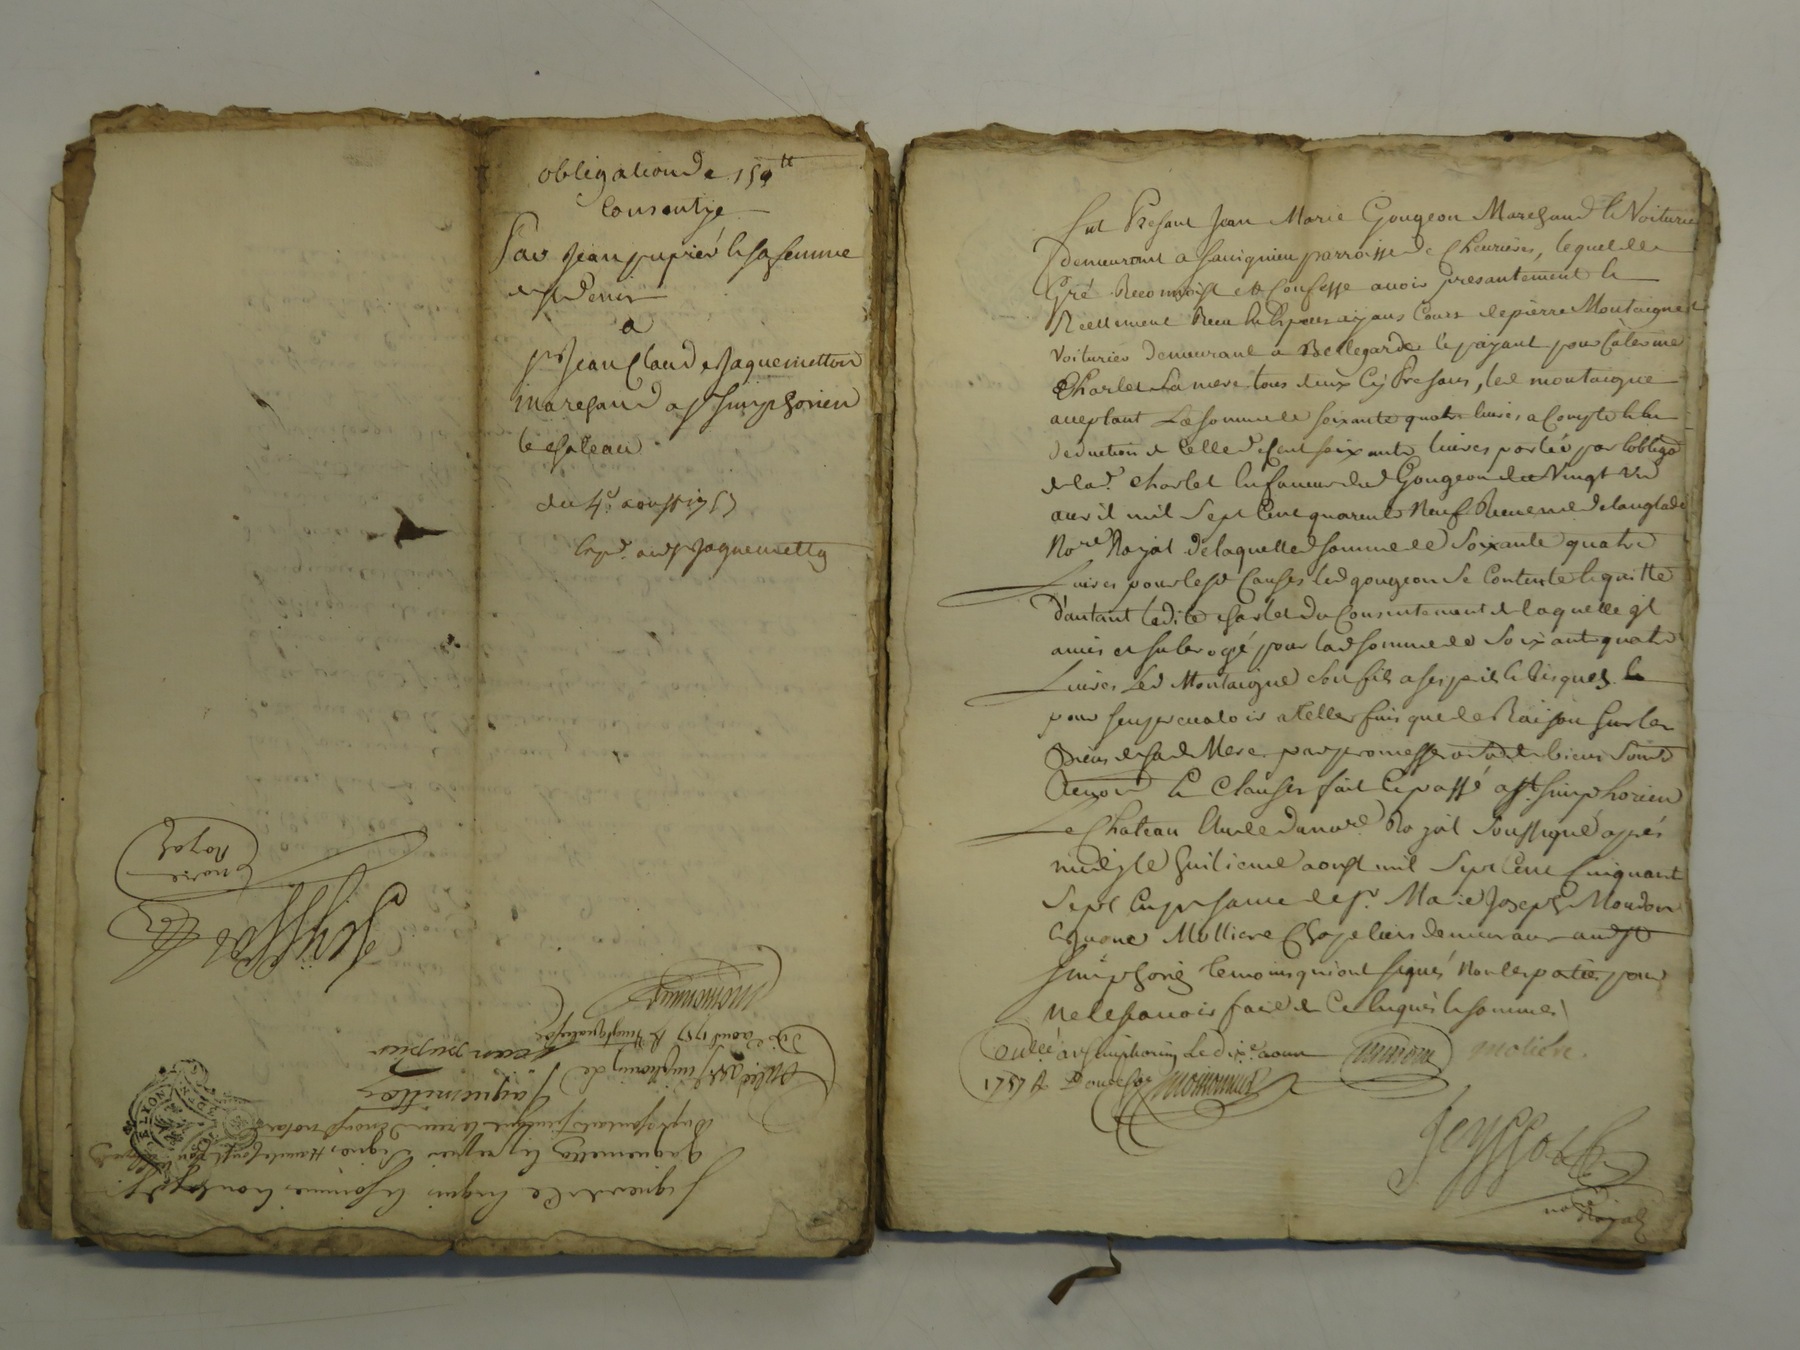 obligation de 159ᵗᵗ
Consentye
Par Jean pupier & sa femme
de St Denis
a
Sr Jean Claude Jaquemetton
marchand a St Simphorien
le chateau
du 4e aoust 1757
Exp.d aud Sr Jaquemetton
signer de ce enquis & sommés
Jaquemetton
Jean pupier
Controllé a St Simphorien le
Dix aoust 1757 R
Momonnier
Jeyssotte
nore
Royal
Fut Presant Jean Marie Gougeon Marchand & Voiturier
demeurant a Sauignieu parroisse de Cheurieres, lequel de
Gré Reconnoist et Confesse auoir presantement &
Reellement Receu En Especes ayans Cours de pierre Montaigne
Voiturier demeurant a Bellegarde & payant pour Caterine
Charlet sa mere tous deux Cy Presans, led montaigne
aceptant La somme de soixante quatre liures a Compte & en
deduction de Celle de Cent soixante liures portée par lobliga
de lad. Charlet En faueur dud Gougeon du Vingt Un
auril mil Sept Cent quarente Neuf Receue me Delanglade
Nore Royal de laquelle somme de Soixante quatre
Liures pour lesd Causes led gougeon Se Contente & quitte
D'autant ladite charlet du Consentement de laquelle il
a mis et subrogé pour lad somme de Soixante quatre
Liures Led Montaigne son fils a ses perils & Risques &
pour sen preualoir a telles fins que de Raison sur les
Biens de sad Mere. par promesse obd de biens Soumd
Renond & Clauses fait & passé a St Simphorien
Le Chateau Etude du nore Royal Soussigné aprés
midy le huitieme aoust mil Sept Cent Cinquante
Sept En presance de Sr Marie Joseph Mondon
& Molliere Chapeliers demeurans aud St
Simphorien temoins qui ont signés Non les parties pour
Ne le sauoir faire de Ce Enquis & sommés
Conllé a St Simphorien Le dixe aoust
1757 R Douze sols Momonnier
Mondon
moliere
Jeyssotte
nore
Royal